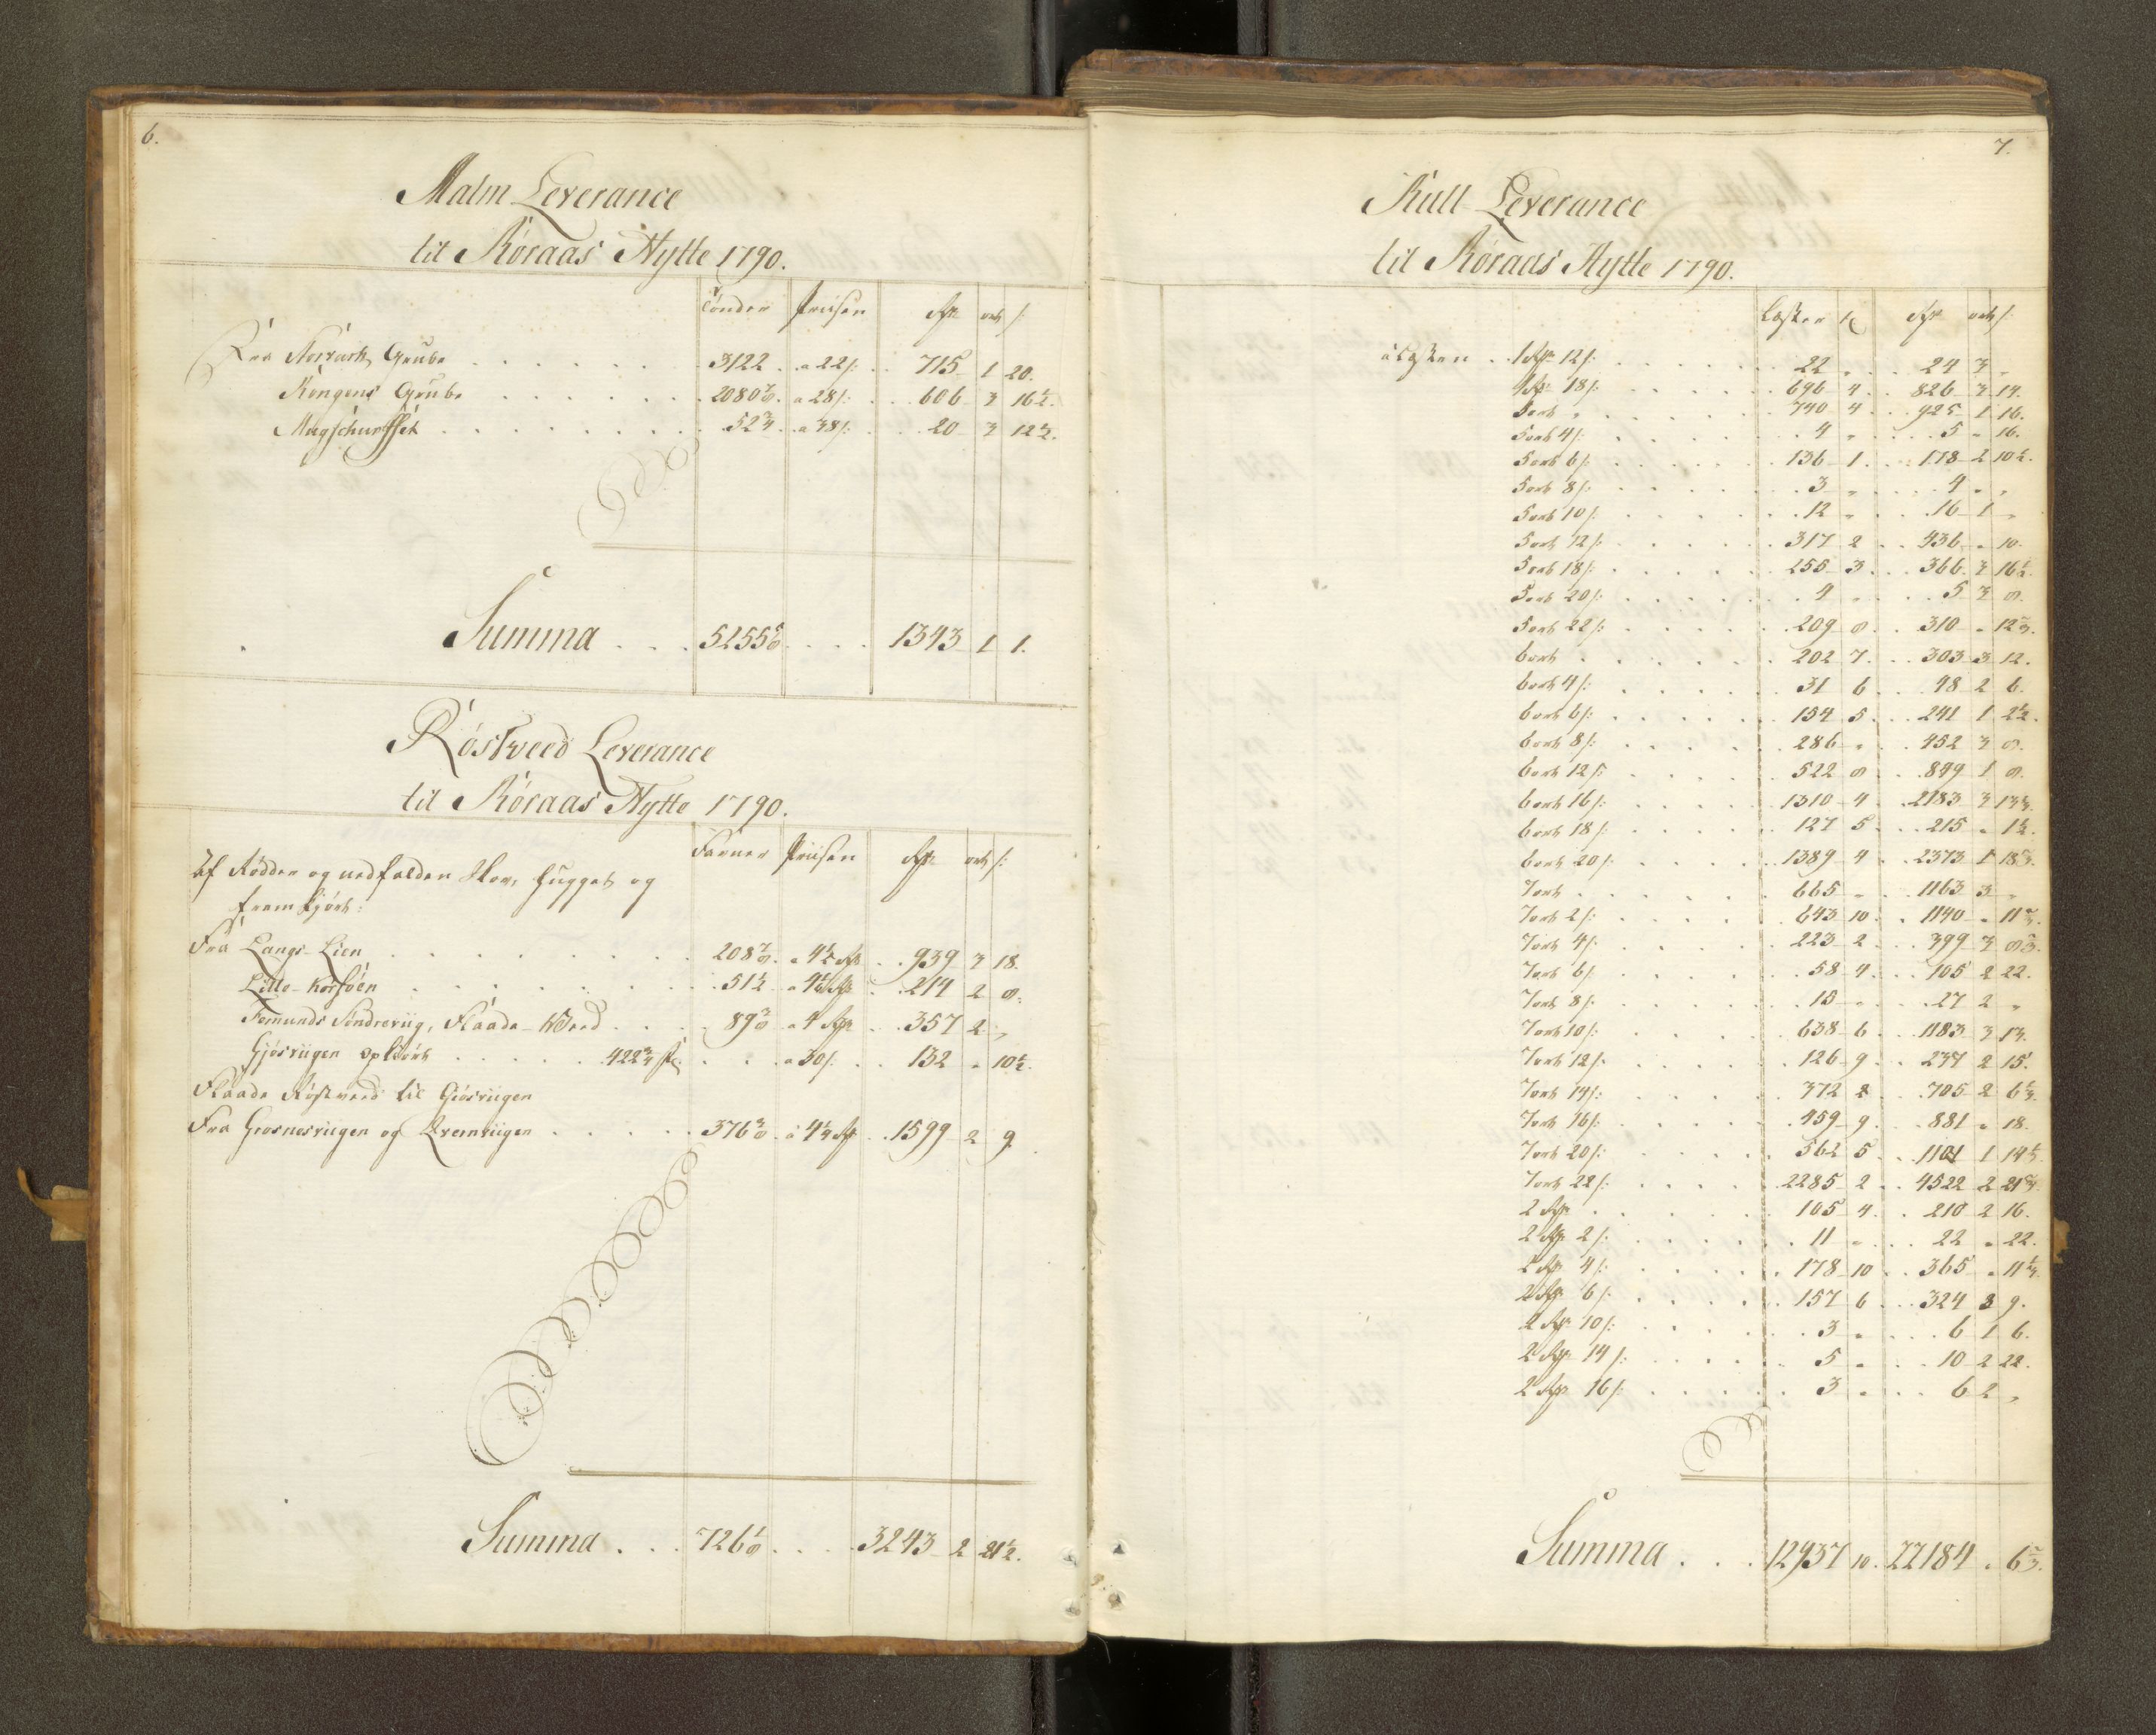 6.
Malm Leverance
til Røraas Hytte 1790.
Tønder Priisen Rdr ort s:
Fra Storvarts Grube . . . 3122 . a 22 s: . . 715 1 20.
Kongens Grube . . . 2080 7/8 . a 28 s: . . 606 3 16 1/2.
Mugschurffet . . . 52 3/4 . a 38 s: . . 20 3 12 1/2.
Summa . . . 5255 5/8 . . . 1343 1 1.
Røstweed Leverance
til Røraas Hytte 1790.
Favner Priisen Rdr ort s:
Af Rødder og nedfalden Skov, hugget og
fremkjørt:
Fra Langs-Lien . . . 208 7/8 . a 4 1/2 Rdr . . 939 3 18.
Lille-Korssøen . . . 51 1/2 . a 4 1/6 Rdr . . 214 2 8.
Femunds Søndreviig, Flaade-Weed . . . 89 3/8 . a 4 Rdr . . 357 2 „
Gjøsviigen opkiørt . . . 422 3/4 . . . a 30 s: . . 132 „ 10 1/2.
Flaade Røstweed til Giøsviigen
Fra Grosnesviigen og Dremviigen . . . 376 3/8 . a 4 1/4 Rdr . . 1599 2 9.
Summa . . . 726 1/8 . . . 3243 2 21 1/2.
7.
Kull Leverance
til Røraas Hytte 1790.
Læster Rdr ort s:
a Læsten . . 1 Rdr 12 s: . . . 22 „ . . 24 3 „
1 Rdr 18 s: . . . 696 4 . . 826 3 14.
5 ort „ . . . 740 4 . . 925 1 16.
5 ort 4 s: . . . 4 „ . . 5 „ 16.
5 ort 6 s: . . . 136 1 . . 178 2 10 1/2.
5 ort 8 s: . . . 3 „ . . 4 „ „
5 ort 10 s: . . . 12 „ . . 16 1 „
5 ort 12 s: . . . 317 2 . . 436 „ 10.
5 ort 18 s: . . . 255 3 . . 366 3 16 1/2.
5 ort 20 s: . . . 4 „ . . 5 3 8.
5 ort 22 s: . . . 209 8 . . 310 „ 12 2/3.
6 ort . . . 202 7 . . 303 3 12.
6 ort 4 s: . . . 31 6 . . 48 2 6.
6 ort 6 s: . . . 154 5 . . 241 1 2 1/2.
6 ort 8 s: . . . 286 „ . . 452 3 8.
6 ort 12 s: . . . 522 8 . . 849 1 8.
6 ort 16 s: . . . 1310 4 . . 2183 3 13 1/3.
6 ort 18 s: . . . 127 5 . . 215 „ 1 1/2.
6 ort 20 s: . . . 1389 4 . . 2373 1 18 2/3.
7 ort . . . 665 „ . . 1163 3 „
7 ort 2 s: . . . 643 10 . . 1140 „ 11 2/3.
7 ort 4 s: . . . 223 2 . . 399 3 8 2/3.
7 ort 6 s: . . . 58 4 . . 105 2 22.
7 ort 8 s: . . . 15 „ . . 27 2 „
7 ort 10 s: . . . 638 6 . . 1183 3 13.
7 ort 12 s: . . . 126 9 . . 237 2 15.
7 ort 14 s: . . . 372 2 . . 705 2 6 1/3.
7 ort 16 s: . . . 459 9 . . 881 „ 18.
7 ort 20 s: . . . 562 5 . . 1101 1 14 1/3.
7 ort 22 s: . . . 2285 2 . . 4522 2 21 2/3.
2 Rdr . . . 105 4 . . 210 2 16.
2 Rdr 2 s: . . . 11 „ . . 22 „ 22.
2 Rdr 4 s: . . . 178 10 . . 365 „ 11 1/3.
2 Rdr 6 s: . . . 157 6 . . 324 3 9.
2 Rdr 10 s: . . . 3 „ . . 6 1 6.
2 Rdr 14 s: . . . 5 „ . . 10 2 22.
2 Rdr 16 s: . . . 3 „ . . 6 2 „
Summa . . . 12937 10 . 22184 „ 6 2/3.